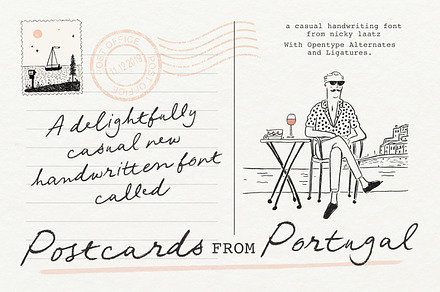 POST OFFICE
POST OFFICE
11.12.2019
A delightfully
casual new
handwritten font
called
a casual handwriting font
from nicky laatz
With Opentype Alternates
and Ligatures.
Postcards FROM Portugal